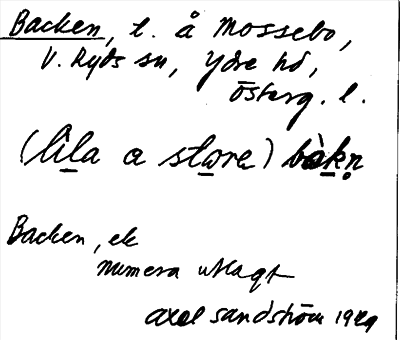 Backen, t. å Mossebo,
V. Ryds sn, Ydre hd,
Österg. l.
(lila a stora) bàkn
Backen, ek
numera utlagt
Axel Sandström 1929